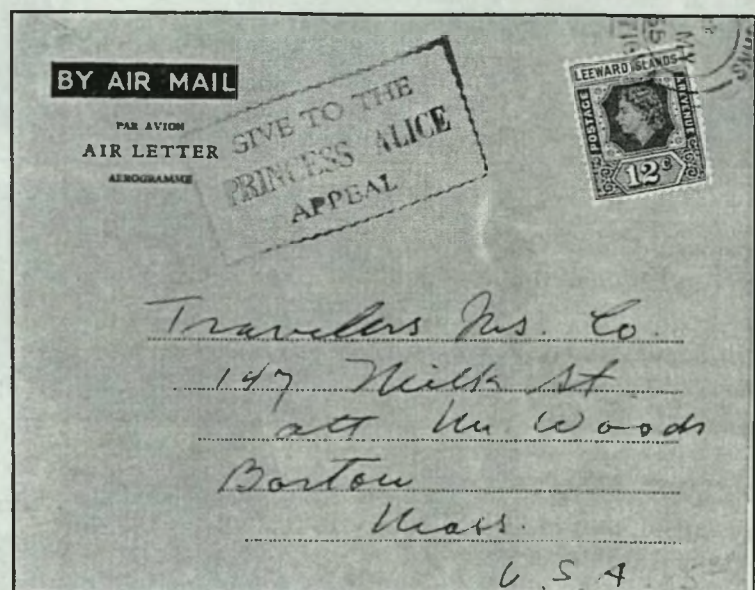 BY AIR MAIL
PAR AVION
AIR LETTER
AEROGRAMME
GIVE TO THE
PRINCESS ALICE
APPEAL
LEEWARD ISLANDS
POSTAGE
& REVENUE
12c
MY
55
Travelers Ins. Co.
147 Milk St.
att Mr Woods
Boston
Mass.
U S A